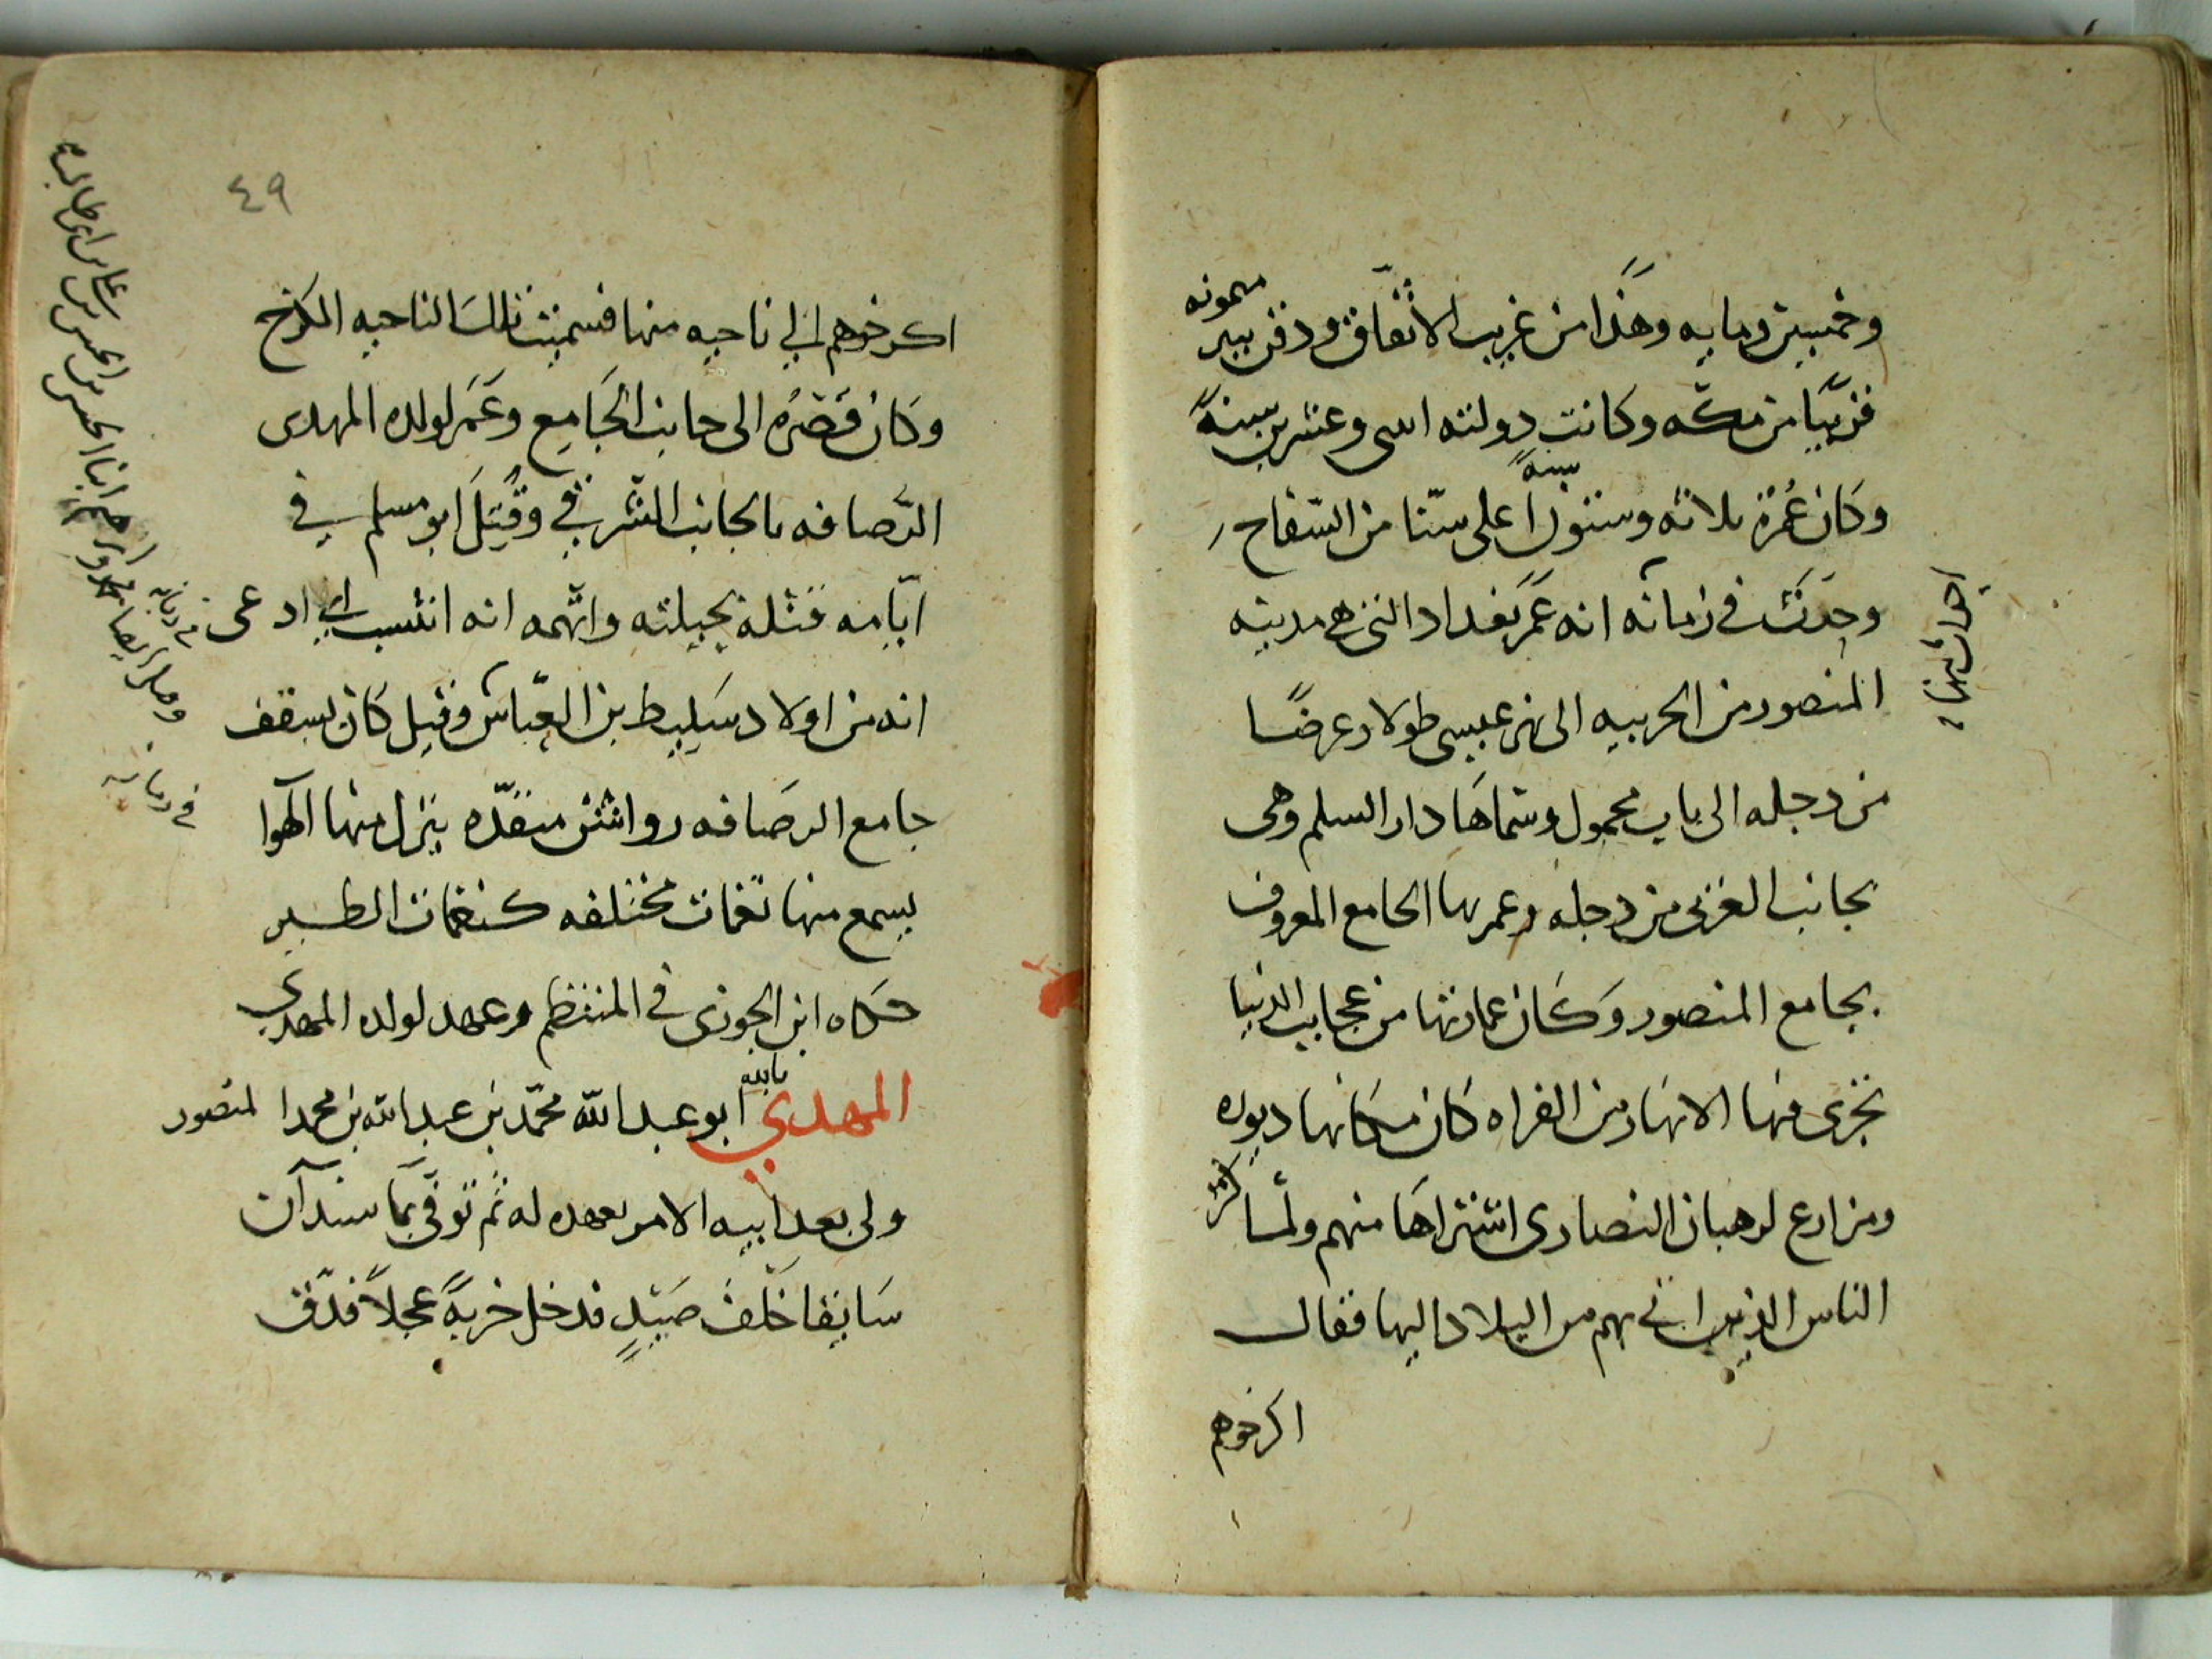 وخمسين ومايه وهذا من غريب الاتفاق ودفن ببير
ميمونه
قريبًا من مكه وكانت دولته اسى وعشرين سنةً
وكان عُمره ثلاثه وستون
سنةً
اعلى سنّا من السّفاح
وحدث في زمانه انه عَمّر بغداد التي هي مدينه
المنصور من الحربيه الى نهر عيسى طولا وعرضًا
من دجله الى باب محمول وسَمّاها دار السلم وهى
بجانب الغربى من دجله وعمر بها الجامع المعروف
بجامع المنصور وكَان عمارتها من عجايب الدنيا
تجرى فيها الانهار من الفراه كان مكانها ديوره
ومزارع لرهبان النصارى اشتراها منهم ولمّا
كثر
الناس الذين اتي بهم من البلاد اليها فقال
اكرخوهم
٤٩
اكرخوهم الي ناحيه منها فسميت تلك الناحيه الكرخ
وكان قصرُه الى جانب الجَامِع وعَمّر لولده المهدى
الرّصافه بالجانب الشرقي وقُتِلَ ابو مسلم في
ايّامه قتله بحيلته واتّهمه انه انتسب اي ادعى
انه من اولاد سَليط بن العبّاس وقيل كان بسقف
جامع الرصَافه رواشن منفّده ينزل منها الهوا
يسمع منها نغمات مختلفه كنغمات الطير
حكاه ابن الجوزى في المنتظم وعهد لولده المهدي
المهدي
بالله
ابو عبد الله محمّد بن عبد الله بن محمد المنصور
ولى بعد ابيه الامر بعهده له ثم توفّي بمَا سندآن
سَايقا خَلْفَ صَيْدٍ فدخل خربةً عجلاً فدّق
في زمانه